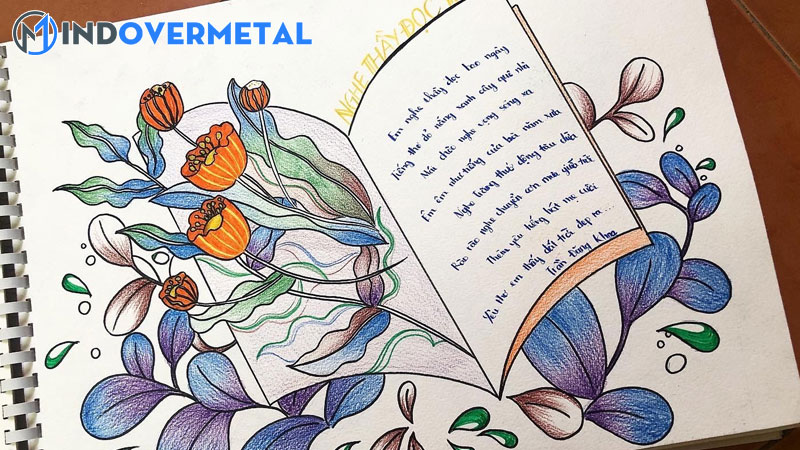 MINDOVERMETAL
NGHE THẦY ĐỌC
Em nghe thầy đọc bao ngày
Tiếng thơ đỏ nắng xanh cây quê nhà
Mái chèo nghe vọng sông xa
Êm êm như tiếng của bà năm xưa
Nghe trăng thuở động tàu dừa
Rào rào nghe chuyển cơn mưa giữa trời
Thêm yêu tiếng hát mẹ cười
Yêu thơ em thấy đất trời đẹp ra...
Trần Đăng Khoa